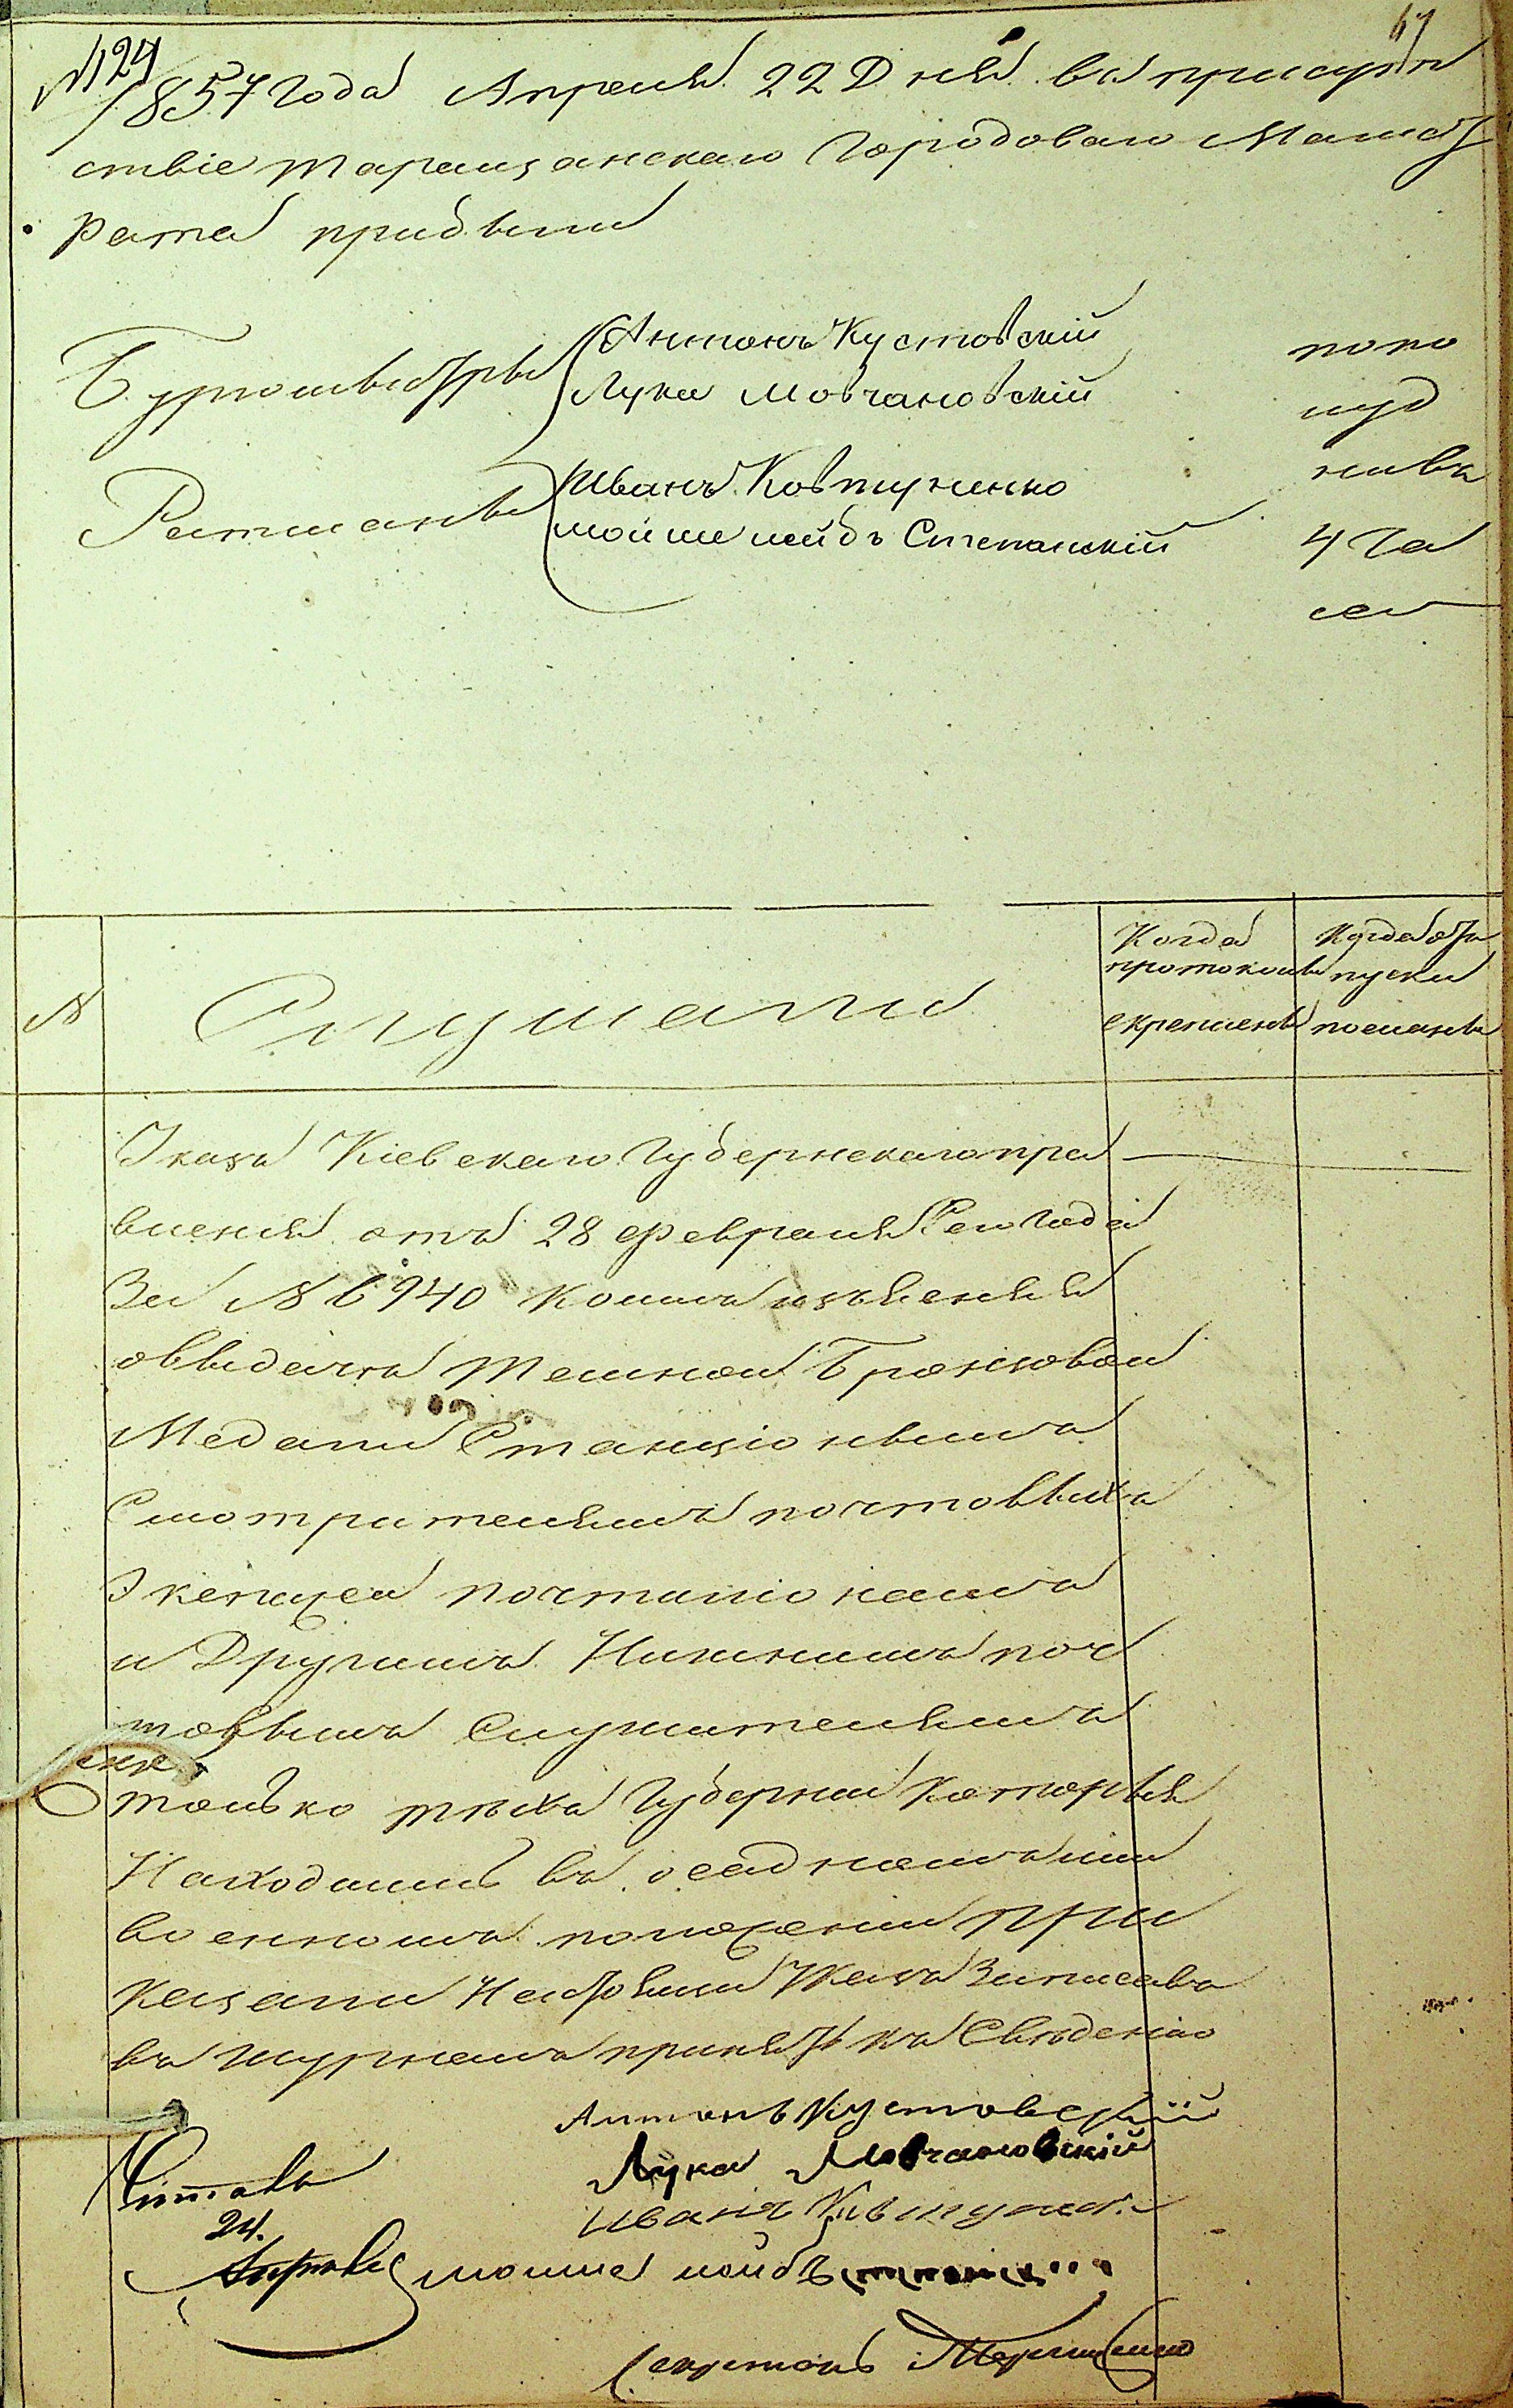 №124
67
1857 года Апреля 22 Дня въ присут
ствіе таращанскаго Городоваго Магист
рата прибыли
Бургомистры Антонъ Кустовскій
Лука Мовчановскій
Ратманы Иванъ Ковтуненко
мошке лейбъ Степанскій
попо
луд
ни въ
4 ча
са
№
Слушали
Когда протоколъ скрепленъ
Куда отпуски посланы
Указъ Кіевскаго Губернскаго пра
вленія отъ 28 февраля Сего года
За № 6940 коимъ
о выдачи темной Бронзовой
Медали Станціоннымъ
Смотрителямъ почтовыхъ
Экспедіей почталіонамъ
и Другимъ Нижнимъ поч
товымъ Служителямъ
только тѣхъ Губерній которыя
Находились въ осадномъ или
военномъ положеніи При
казали Настоящій Указъ Записавъ
въ журналъ принять къ Сведенію
Антонъ Кустовскій
Лука Мовчановскій
Иванъ Ковтунен
Читалъ
24.
Апреля
мошке лейбъ
Секретарь